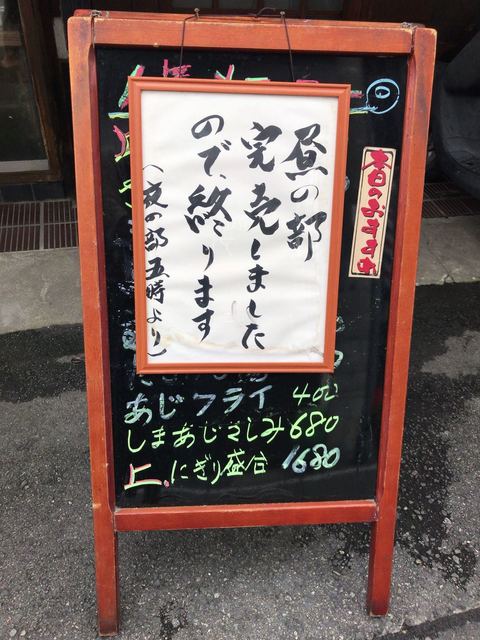 昼の部
完売しました
ので、終ります
(夜の部五時より)
本日のおすすめ
あじフライ 400
しまあじさしみ 680
上、にぎり盛合 1680